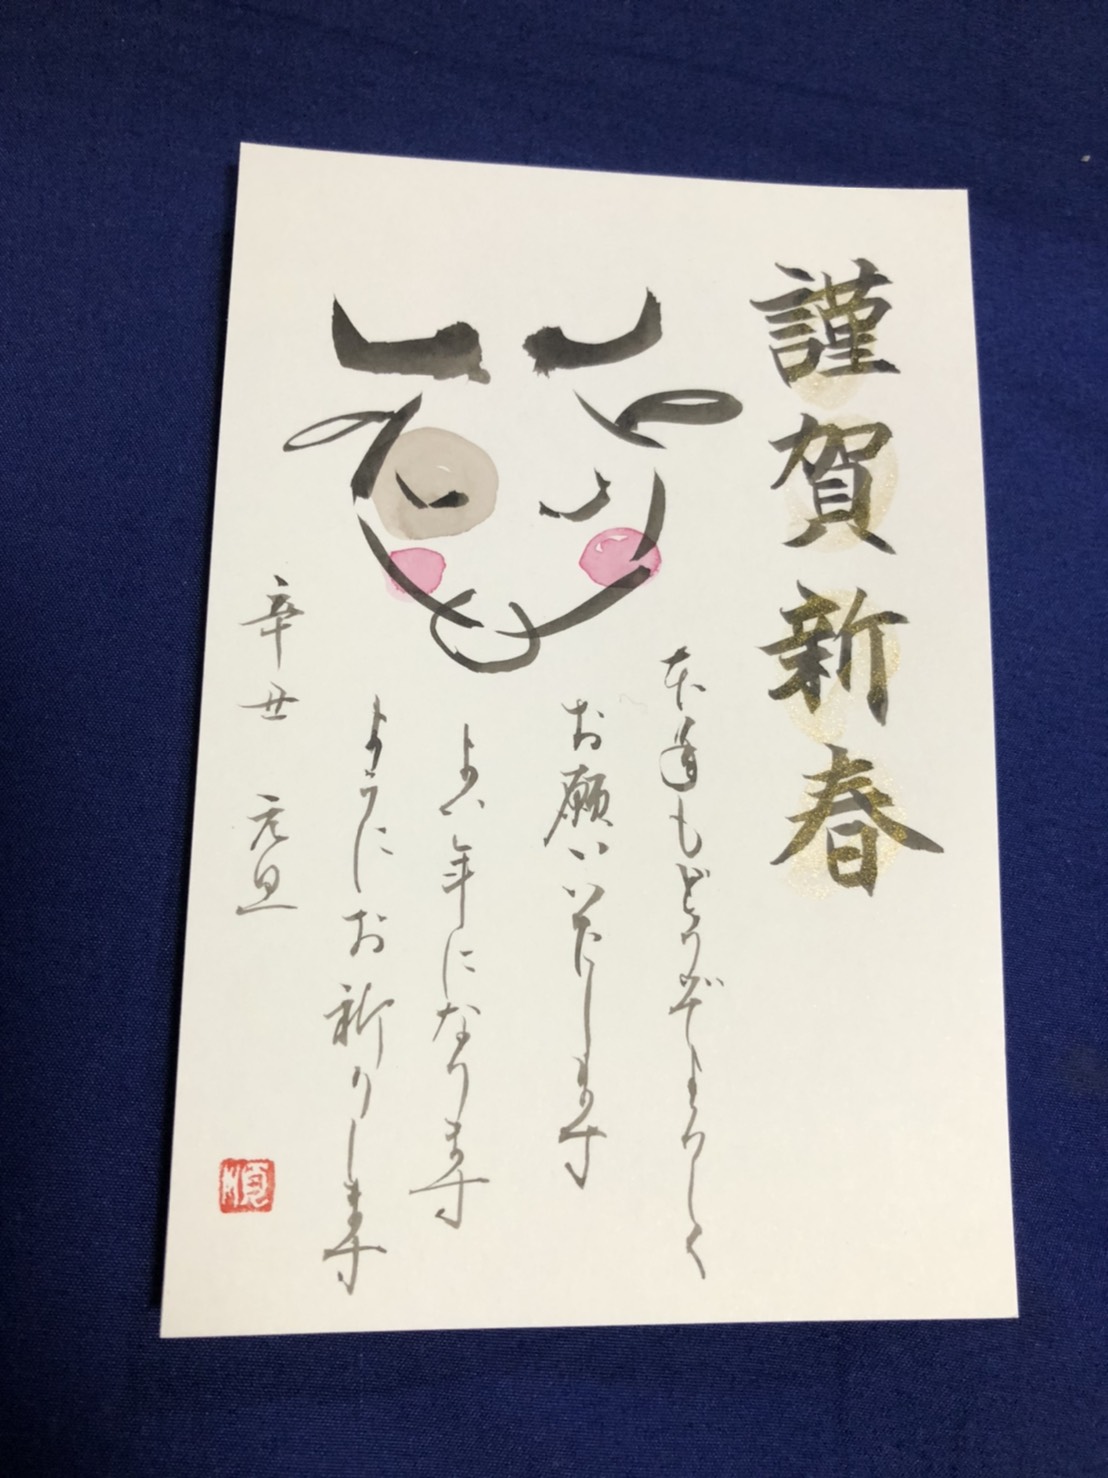 謹賀新春
本年もどうぞよろしく
お願いいたします
よい年になります
ようにお祈りします
辛丑 元旦
順